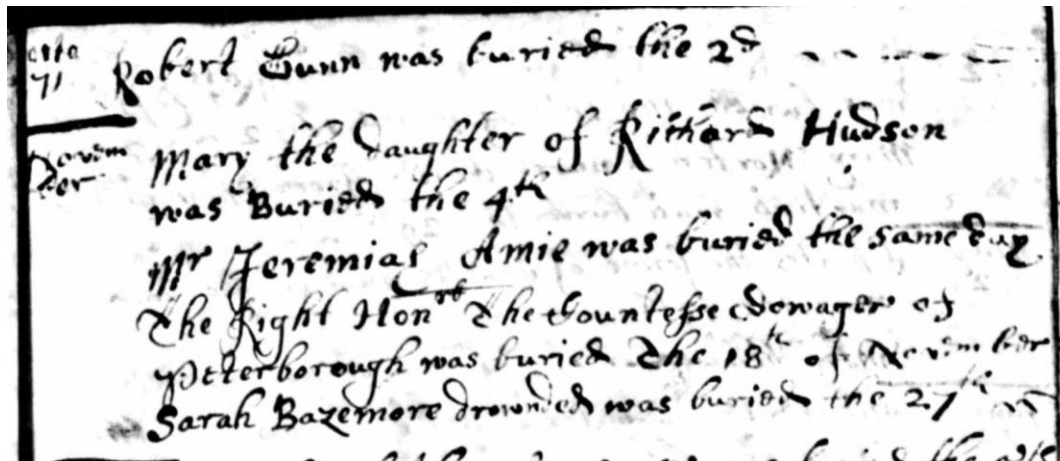 71 Robert Gunn was buried the 2d
Novem Mary the daughter of Richard Hudson
ber was Buried the 4th
Mr Jeremias Amie was buried the same day
The Right Honrb The Countesse dowager of
Peterborough was buried The 18th of November
Sarah Bazemore drownded was buried the 27th